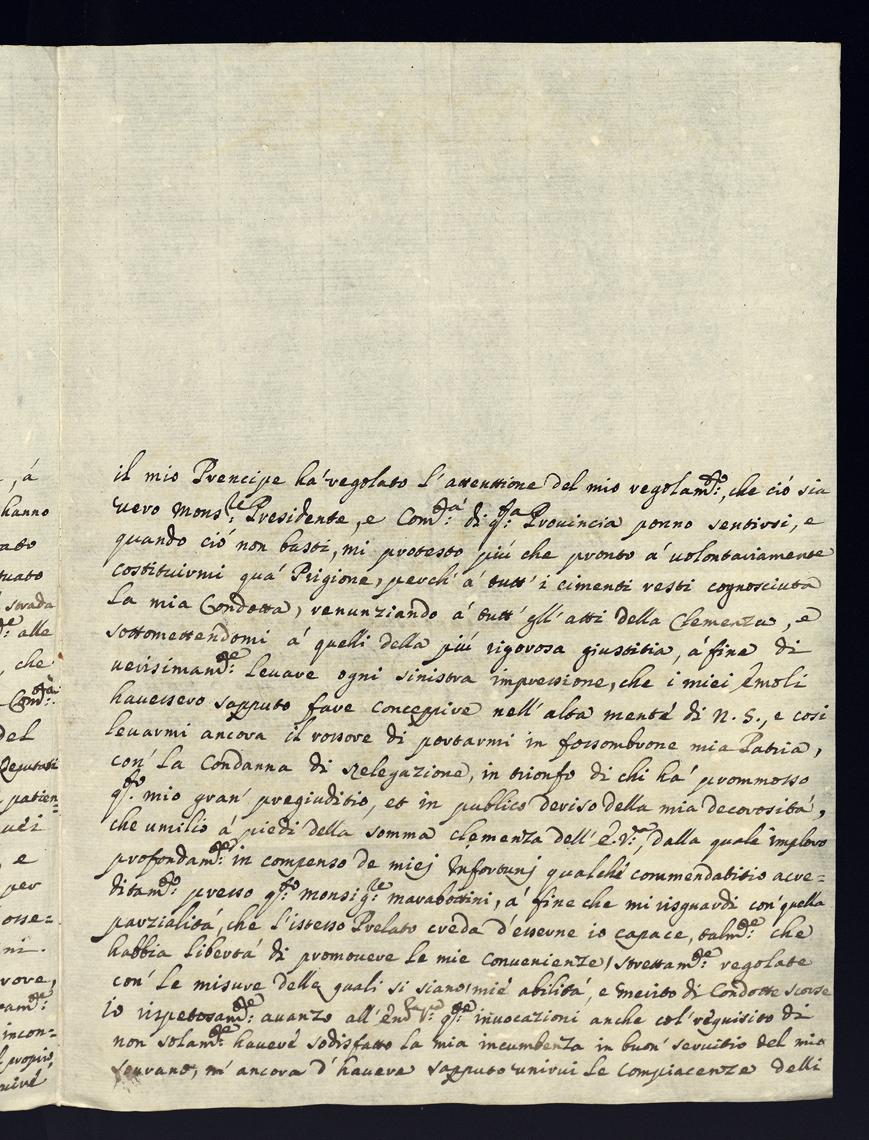 , á
hanno
ato
tuato
strada
alle
, che
Com.tà
del
Deputati
patien=
uéi
e
per
osse=
ni.
rove,
incon=
propio
il mio Prencipe há regolato l'attentione del mio regolam.to, che ció sia
uero Mons.re Presidente, e Com.tá di q.sta Prouincia ponno sentirsi, e
quando ció non basti, mi protesto piú che pronto á uolontariamente
costituirmi quá Prigione, perch' á tutt' i cimenti resti cognosciuta
la mia Condotta, renunziando á tutt' gl' atti della Clemenza, e
sottomettendomi á quelli della piú rigorosa giustitia, á fine di
uerisimam.te leuare ogni sinistra impressione, che i miei émoli
hauessero sapputo fare conceppire nell' alta menté di N. S., e cosi
leuarmi ancora il rossore di portarmi in fossombrone mia Patria,
con' la Condanna di Relegazione, in trionfo di chi há prommosso
q.sto mio gran' pregiuditio, et in publico deriso della mia decorositá,
che umilio á piedi della somma clemenza dell' E. V.ra, dalla quale imploro
profondam.te in compenso de miej Infortunj qualché commendatitio acre=
ditam.to presso q.sto monsig.re marabottini, á fine che mi risguardi con' quella
parzialitá, che l'istesso Prelato creda d'esserne io capace, talm.te che
habbia libertá di promouere le mie conuenienze strettam.te regolate
con' le misure della quali si siano mié abilitá, e merito di Condotte scorse
Io rispetosam.te auanzo all' Em.za V.ra q.ste inuocazioni anche col' réquisito di
non solam.te haueré sodisfatto la mia incumbenza in buon' seruitio del mio
Sourano, m' ancora d' hauere sapputo unirui le compiacenze delli